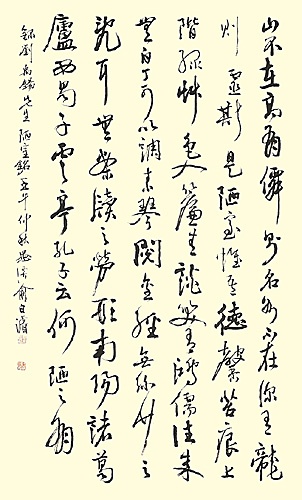 山不在高有僊則名水不在深有龍
則靈斯是陋室惟吾德馨苔痕上
階綠艸色入簾青談笑有鴻儒往來
無白丁可以調素琴閱金經無絲竹之
亂耳無案牘之勞形南陽諸葛
廬西蜀子雲亭孔子云何陋之有
錄劉禹錫先生陋室銘壬午仲秋